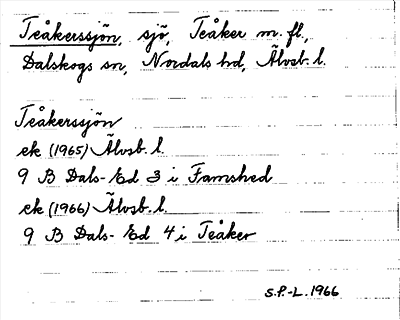 Teåkerssjön, sjö, Teåker m. fl.,
Dalskogs sn, Nordals hd, Älvsb. l.
Teåkerssjön
ek (1965) Älvsb. l.
9 B Dals-Ed 3 i Famshed
ek (1966) Älvsb. l.
9 B Dals-Ed 4 i Teåker
S.P.-L. 1966